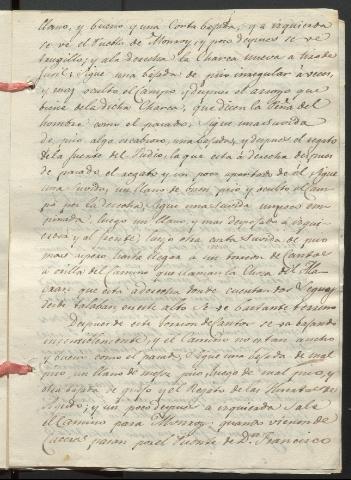 llano, y bueno y una Corta bajada, y a izquierda
se ve el Pueblo de Monroy, y poco despues se ve
trugillo, y ala derecha la Charca nueva a tiro de
fusil, sigue una bajada de piso irregular a veces,
y muy oculto el campo, y despues el arroyo que
biene de la dicha Charca, que dicen la del
hombre como el pasado, sigue una suvida
de piso algo escabroso, una bajada, y despues el regato
de la fuente del Judio, la que esta à derecha despues
de pasado el regato y un poco apartada de él, sigue
una suvida, un llano de buen piso y oculto el cam
po por la derecha, sigue una suvida
luego un llano, y mas despejado à izqui
erda y al frente, luego otra corta suvida de piso
mas aspero hasta llegar à un monton de Cantos
à orilla del Camino que llaman la Cruz de
que esta a derecha donde cuentan dos leguas
deste talaban, en este alto se ve bastante terreno
Despues de este monton de Cantos se va bajando
insensiblemente, y el Camino no es tan ancho
y bueno como el pasado, sigue una bajada de mal
piso, un llano de mejor piso, luego de mal piso, y
otra bajada de guijo y el Regato de las
y un poco despues a izquierda sale
el Camino para Monroy, quando vienen de
Caceres pasan por el Puente de Dn. Francisco